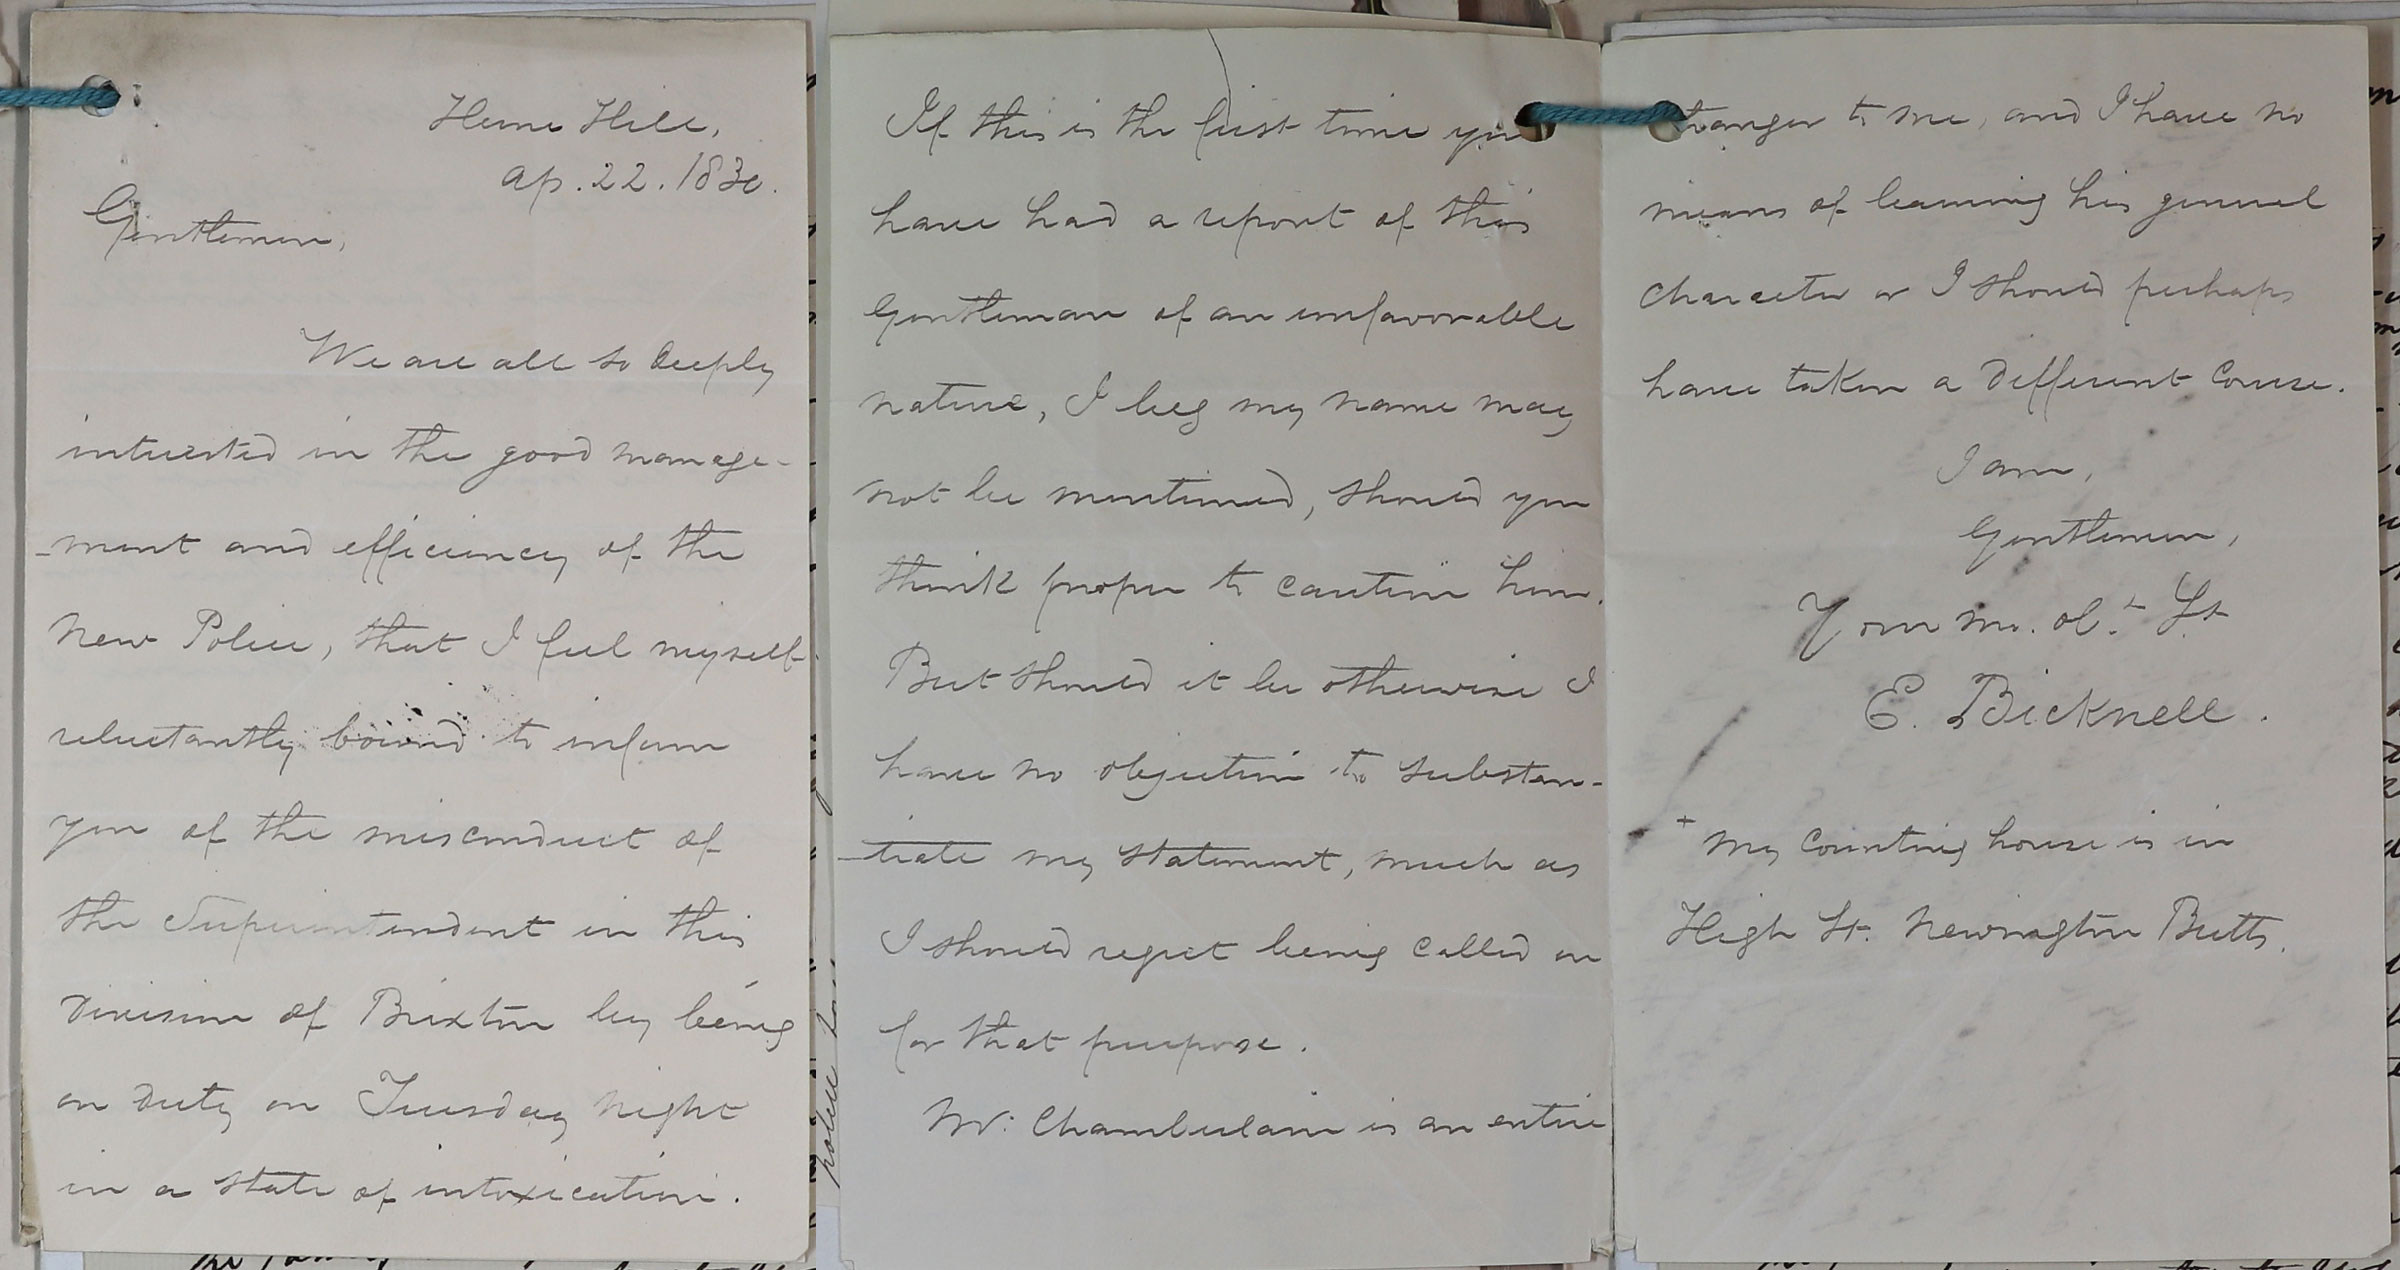 Herne Hill,
Ap. 22. 1830.
Gentlemen,
We are all so deeply
interested in the good manage-
-ment and efficiency of the
New Police, that I feel myself
reluctantly bound to inform
you of the misconduct of
the Superintendent in this
Division of Brixton by being
on duty on Tuesday night
in a state of intoxication.
If this is the first time you
have had a report of this
Gentleman of an unfavorable
nature, I beg my name may
not be mentioned, should you
think proper to caution him.
But should it be otherwise I
have no objection to substan-
-tiate my statement, much as
I should regret being called on
for that purpose.
Mr. Chamberlain is an entire
stranger to me, and I have no
means of learning his general
character or I should perhaps
have taken a different course.
I am,
Gentlemen,
Your mo. obt. St
E. Bicknell.
+ My Counting house is in
High St. Newington Butts.
police